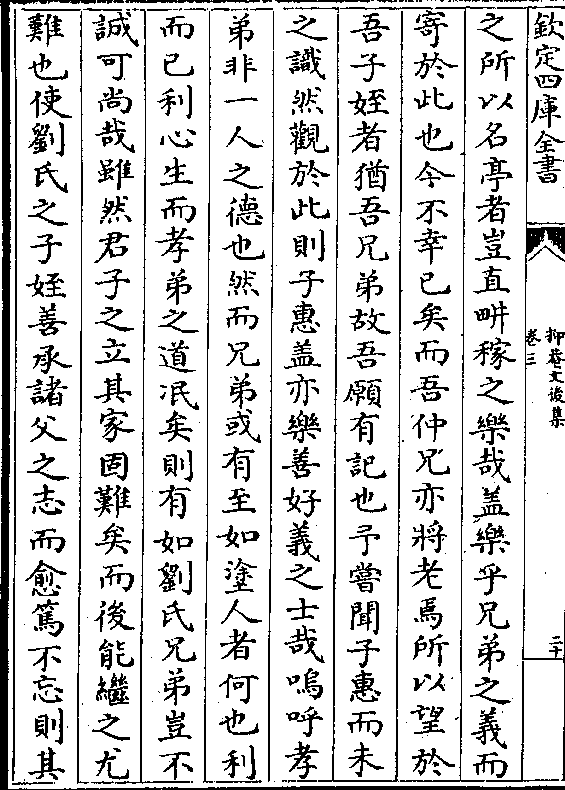 欽定四庫全書
抑菴文後集
卷三
二十
之所以名亭者豈直畊稼之樂哉盖樂乎兄弟之義而
寄於此也今不幸已矣而吾仲兄亦將老焉所以望於
吾子姪者猶吾兄弟故吾願有記也予嘗聞子惠而未
之識然觀於此則子惠盖亦樂善好義之士哉嗚呼孝
弟非一人之德也然而兄弟或有至如塗人者何也利
而已利心生而孝弟之道泯矣則有如劉氏兄弟豈不
誠可尚哉雖然君子之立其家固難矣而後能繼之尤
難也使劉氏之子姪善承諸父之志而愈篤不忘則其